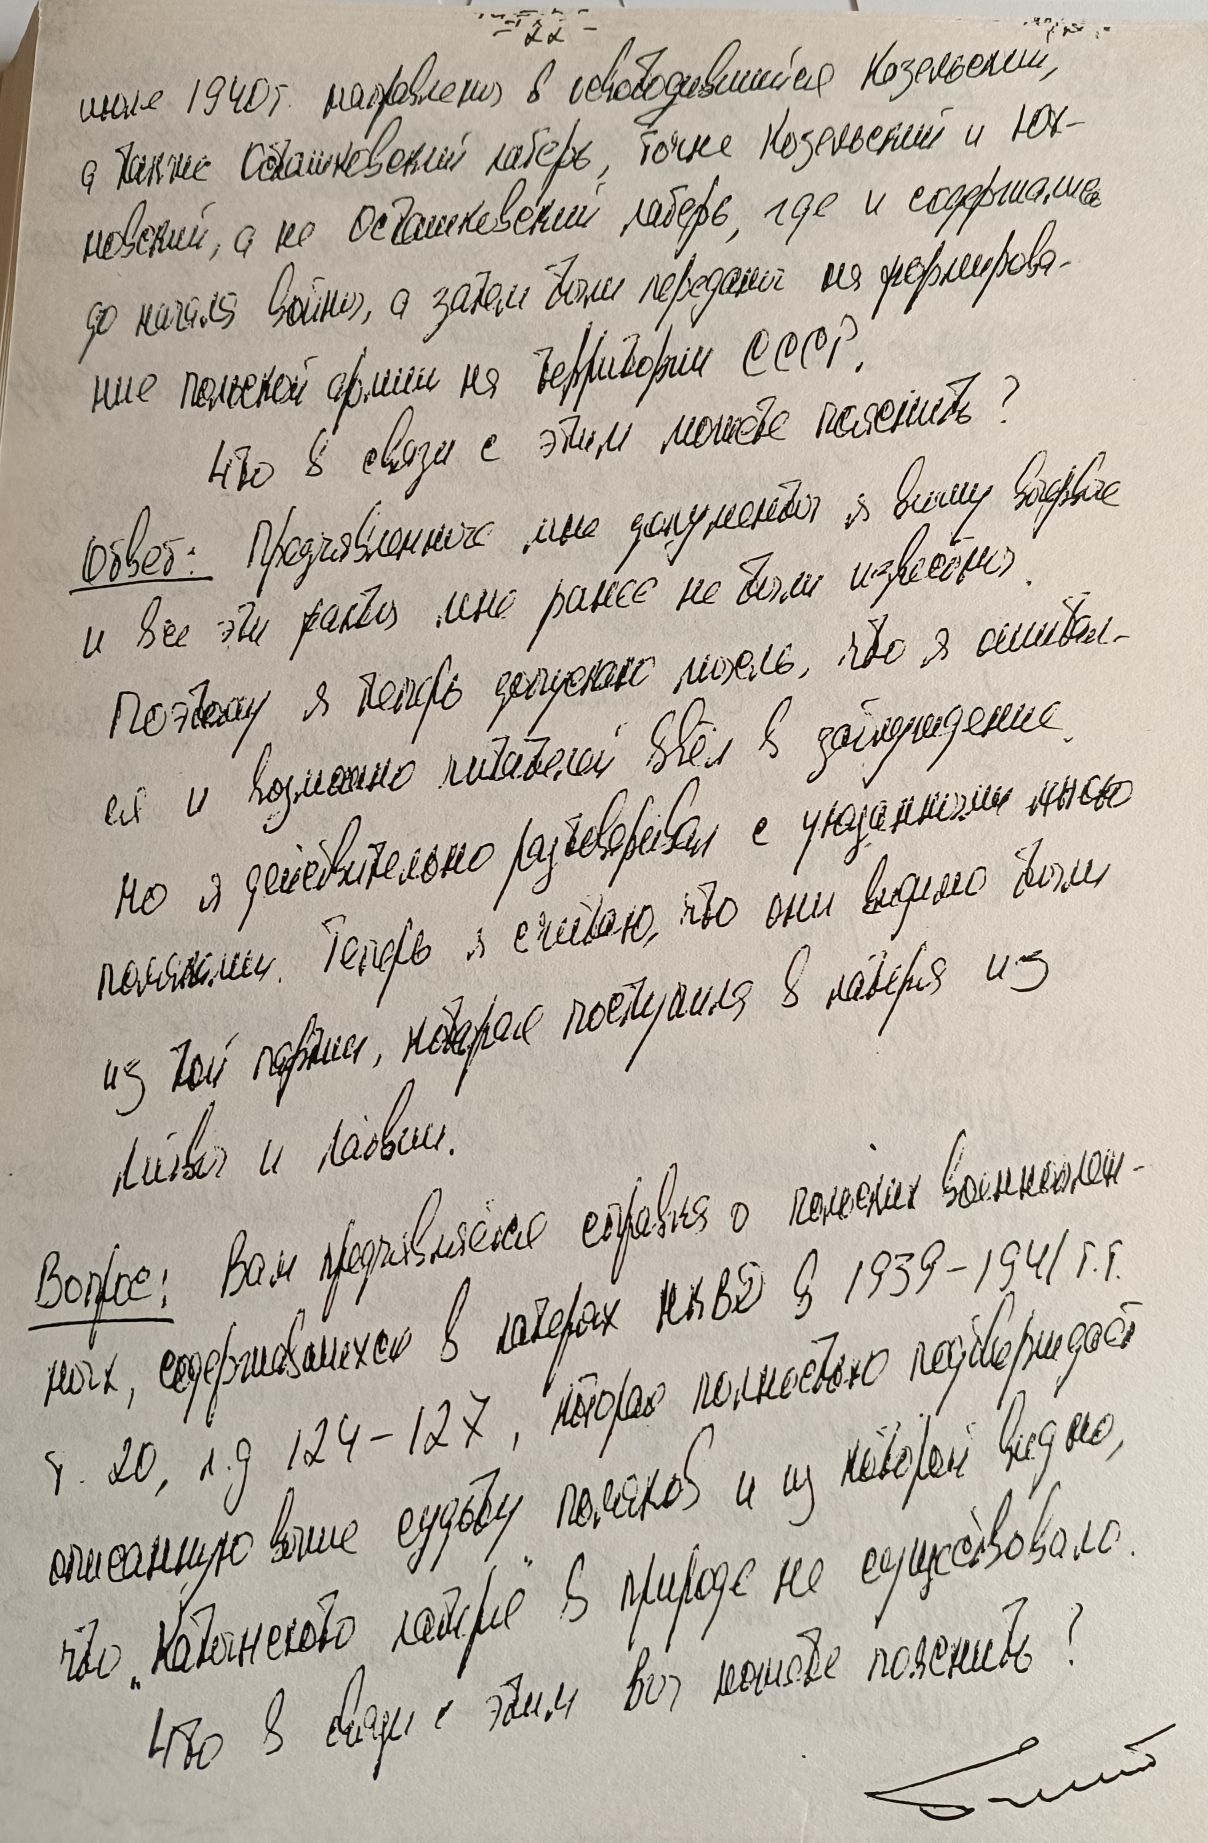 - 22 -
июле 1940 г. направлены в освободившийся Козельский,
а также Осташковский лагерь, точне Козельский и Юх-
новский, а не Осташковский лагерь, где и содержались
до начала войны, а затем были переданы на формирова-
ние польской армии на территории СССР.
Что в связи с этим можете пояснить?
Ответ: Предъявленные мне документы я вижу впервые
и все эти факты мне ранее не были известны.
Поэтому я теперь допускаю мысль, что я ошибал-
ся и возможно читателей ввёл в заблуждение.
Но я действительно разговаривал с указанными мною
поляками. Теперь я считаю, что они видимо были
из той партии, которая поступила в лагеря из
Литвы и Латвии.
Вопрос: Вам предъявляется справка о польских военноплен-
ных, содержавшихся в лагерях НКВД в 1939-1941 г.г.
т. 20, л.д 124-127, которая полностью подтверждает
описанную выше судьбу поляков и из которой видно,
что „Катынского лагеря" в природе не существовало.
Что в связи с этим вы можете пояснить?